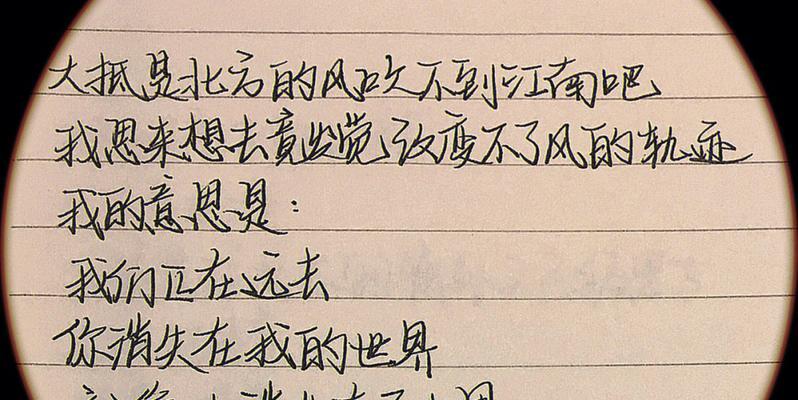 大抵是北方的风吹不到江南吧
我思来想去竟发觉改变不了风的轨迹
我的意思是：
我们正在远去
你消失在我的世界